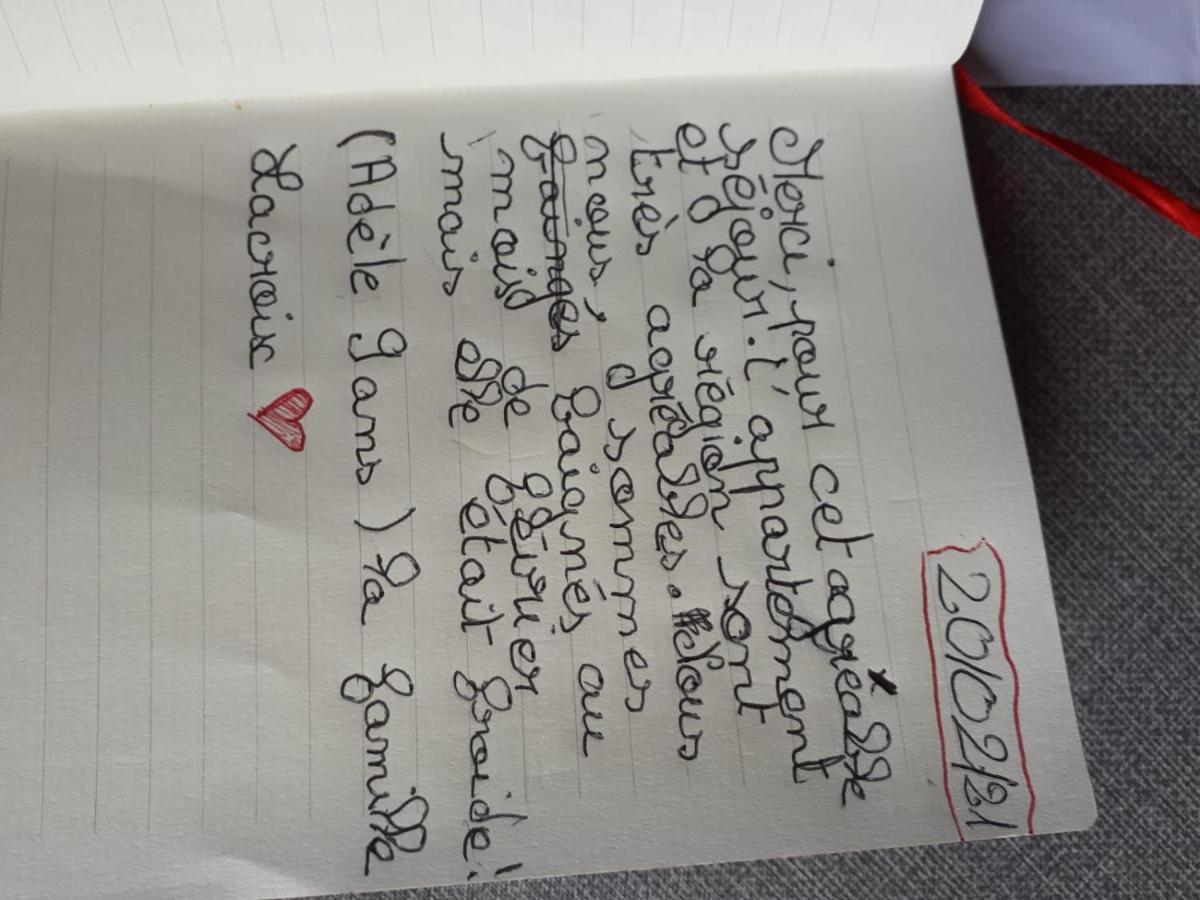 20/02/21
Merci, pour cet agréable
séjour. l'appartement
et la région sont
très agréables. Nous
nous, sommes
baignés au
mois de février
mais elle était froide!
(Adèle 9 ans) la famille
Lacroix